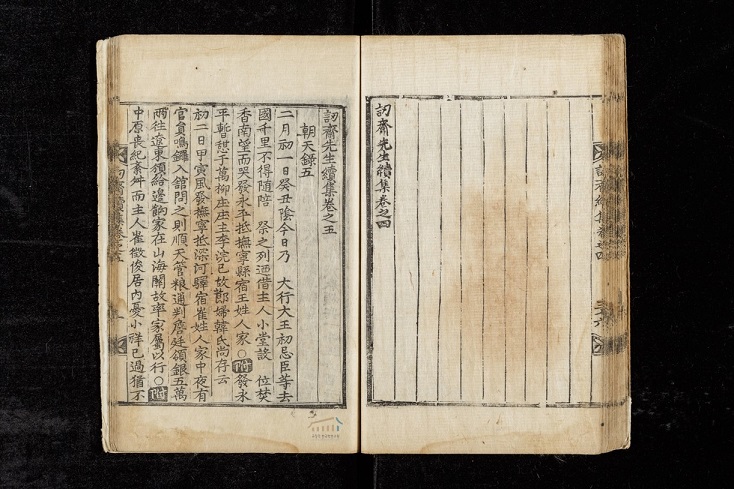 訒齋先生續集卷之四
訒齋先生續集卷之五
朝天錄五
二月初一日癸丑陰今日乃 大行大王初忌臣等去
國千里不得隨陪 祭之列洒借主人小堂設 位焚
香南望而哭發永平抵撫寧縣宿王姓人家○附發永
平暫憇于萬柳庄庄主李浣已故郞婦韓氏尚存云
初二日甲寅風發撫寧抵深河驛宿崔姓人家中夜有
官負鳴鑼入館問之則順天管粮通判詹廷領銀五萬
兩往遼東領給邊餉家在山海關故率家屬以行○附
中原喪紀紊舛而主人崔徵俊居内憂小祥已過猶不